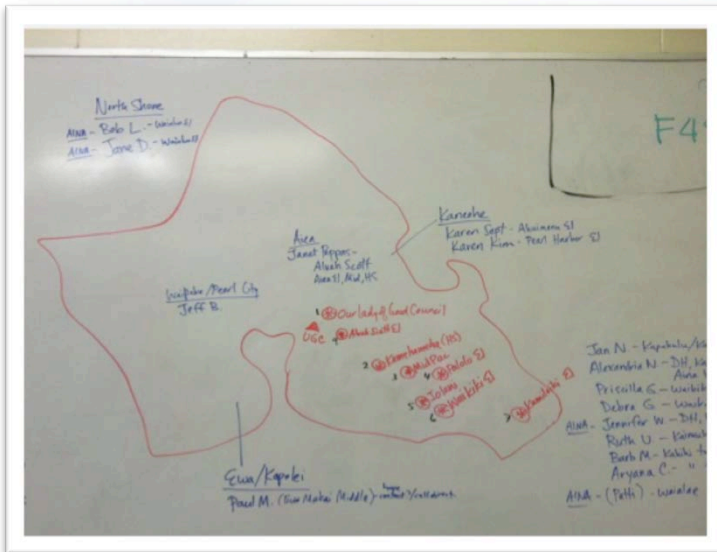 North Shore
AINA - Bob L. - Waialua El
AINA - Jane D. - Waialua El
F4
Kaneohe
Karen Sept - Ahuimanu El
Karen Kim - Pearl Harbor El
Aiea
Janet Pappas -
Alvah Scott
Aiea El, Mid, HS
Waipahu/Pearl City
Jeff B.
1 Our Lady of Good Council
UGC
Alvah Scott El
2 Kamehameha (HS)
3 Mid Pac
4 Palolo El
5 Iolani
6 Waikiki El
7 El
Jan N - Kapahulu/
Alexandria N - DH,
Aina
Priscilla G - Waikiki
Debra G -
AINA - Jennifer W - DH,
Ruth U. - Kaimuki
Barb M -
Aryana C. - "
AINA - (Patti) - Waialae
Ewa/Kapolei
Paul M. (Ewa Makai Middle) -